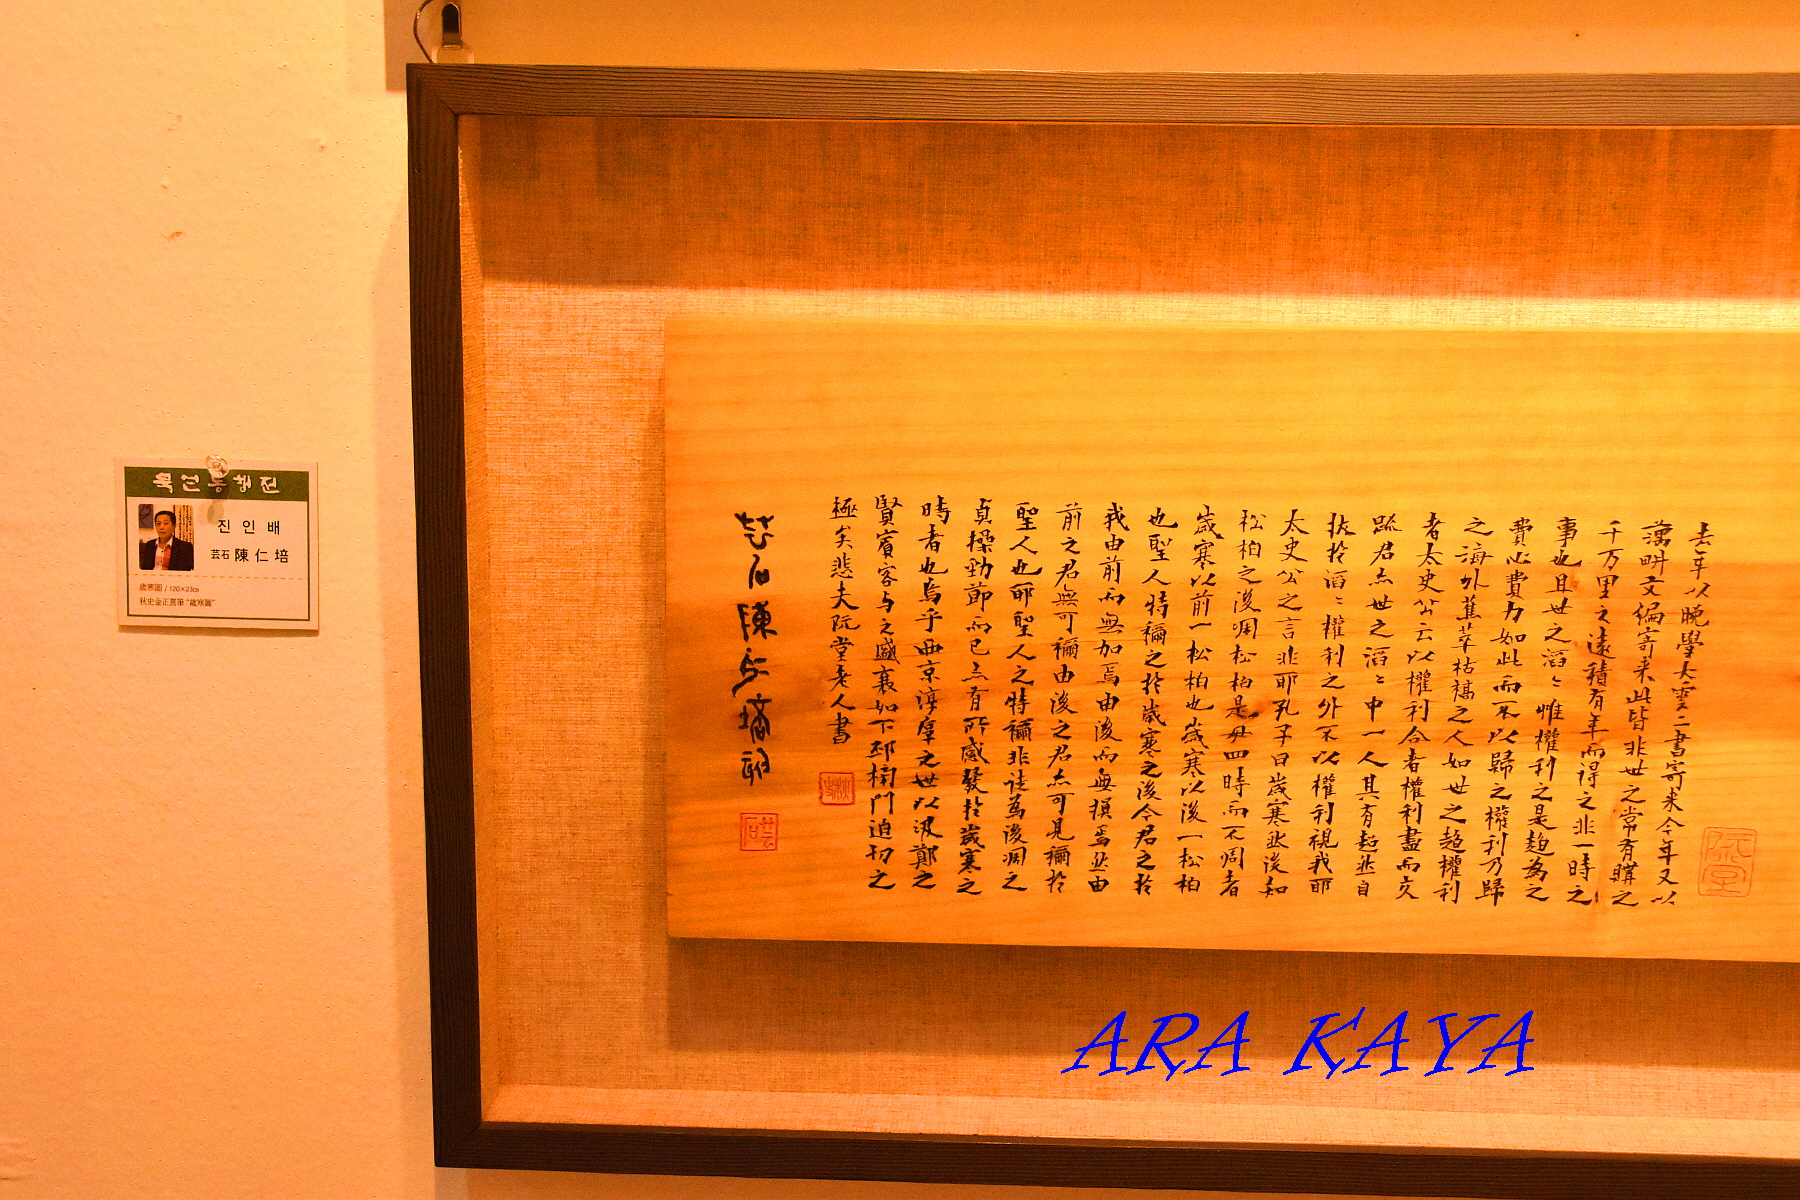 묵연동행전
진 인 배
芸石 陳 仁 培
歲寒圖 / 120×23㎝
秋史金正喜筆 "歲寒圖"
去年以晚學大雲二書寄来今年又以
藕畊文編寄来此皆非世之常有購之
千万里之遠積有年而得之非一時之
事也且世之滔〻惟權利之是趨為之
費心費力如此而不以歸之權利乃歸
之海外蕉萃枯槁之人如世之趨權利
者太史公云以權利合者權利盡而交
疏君亦世之滔〻中一人其有超然自
拔於滔〻權利之外不以權利視我耶
太史公之言非耶孔子曰歲寒然後知
松柏之後凋松柏是毋四時而不凋者
歲寒以前一松柏也歲寒以後一松柏
也聖人特稱之於歲寒之後今君之於
我由前而無加焉由後而無損焉然由
前之君無可稱由後之君亦可見稱於
聖人也耶聖人之特稱非徒為後凋之
貞操勁節而已亦有所感發於歲寒之
時者也烏乎西京淳厚之世以汲鄭之
賢賓客与之盛衰如下邳榜門迫切之
極矣悲夫阮堂老人書
芸石陳仁培
阮堂
秋史
芸石
ARA KAYA